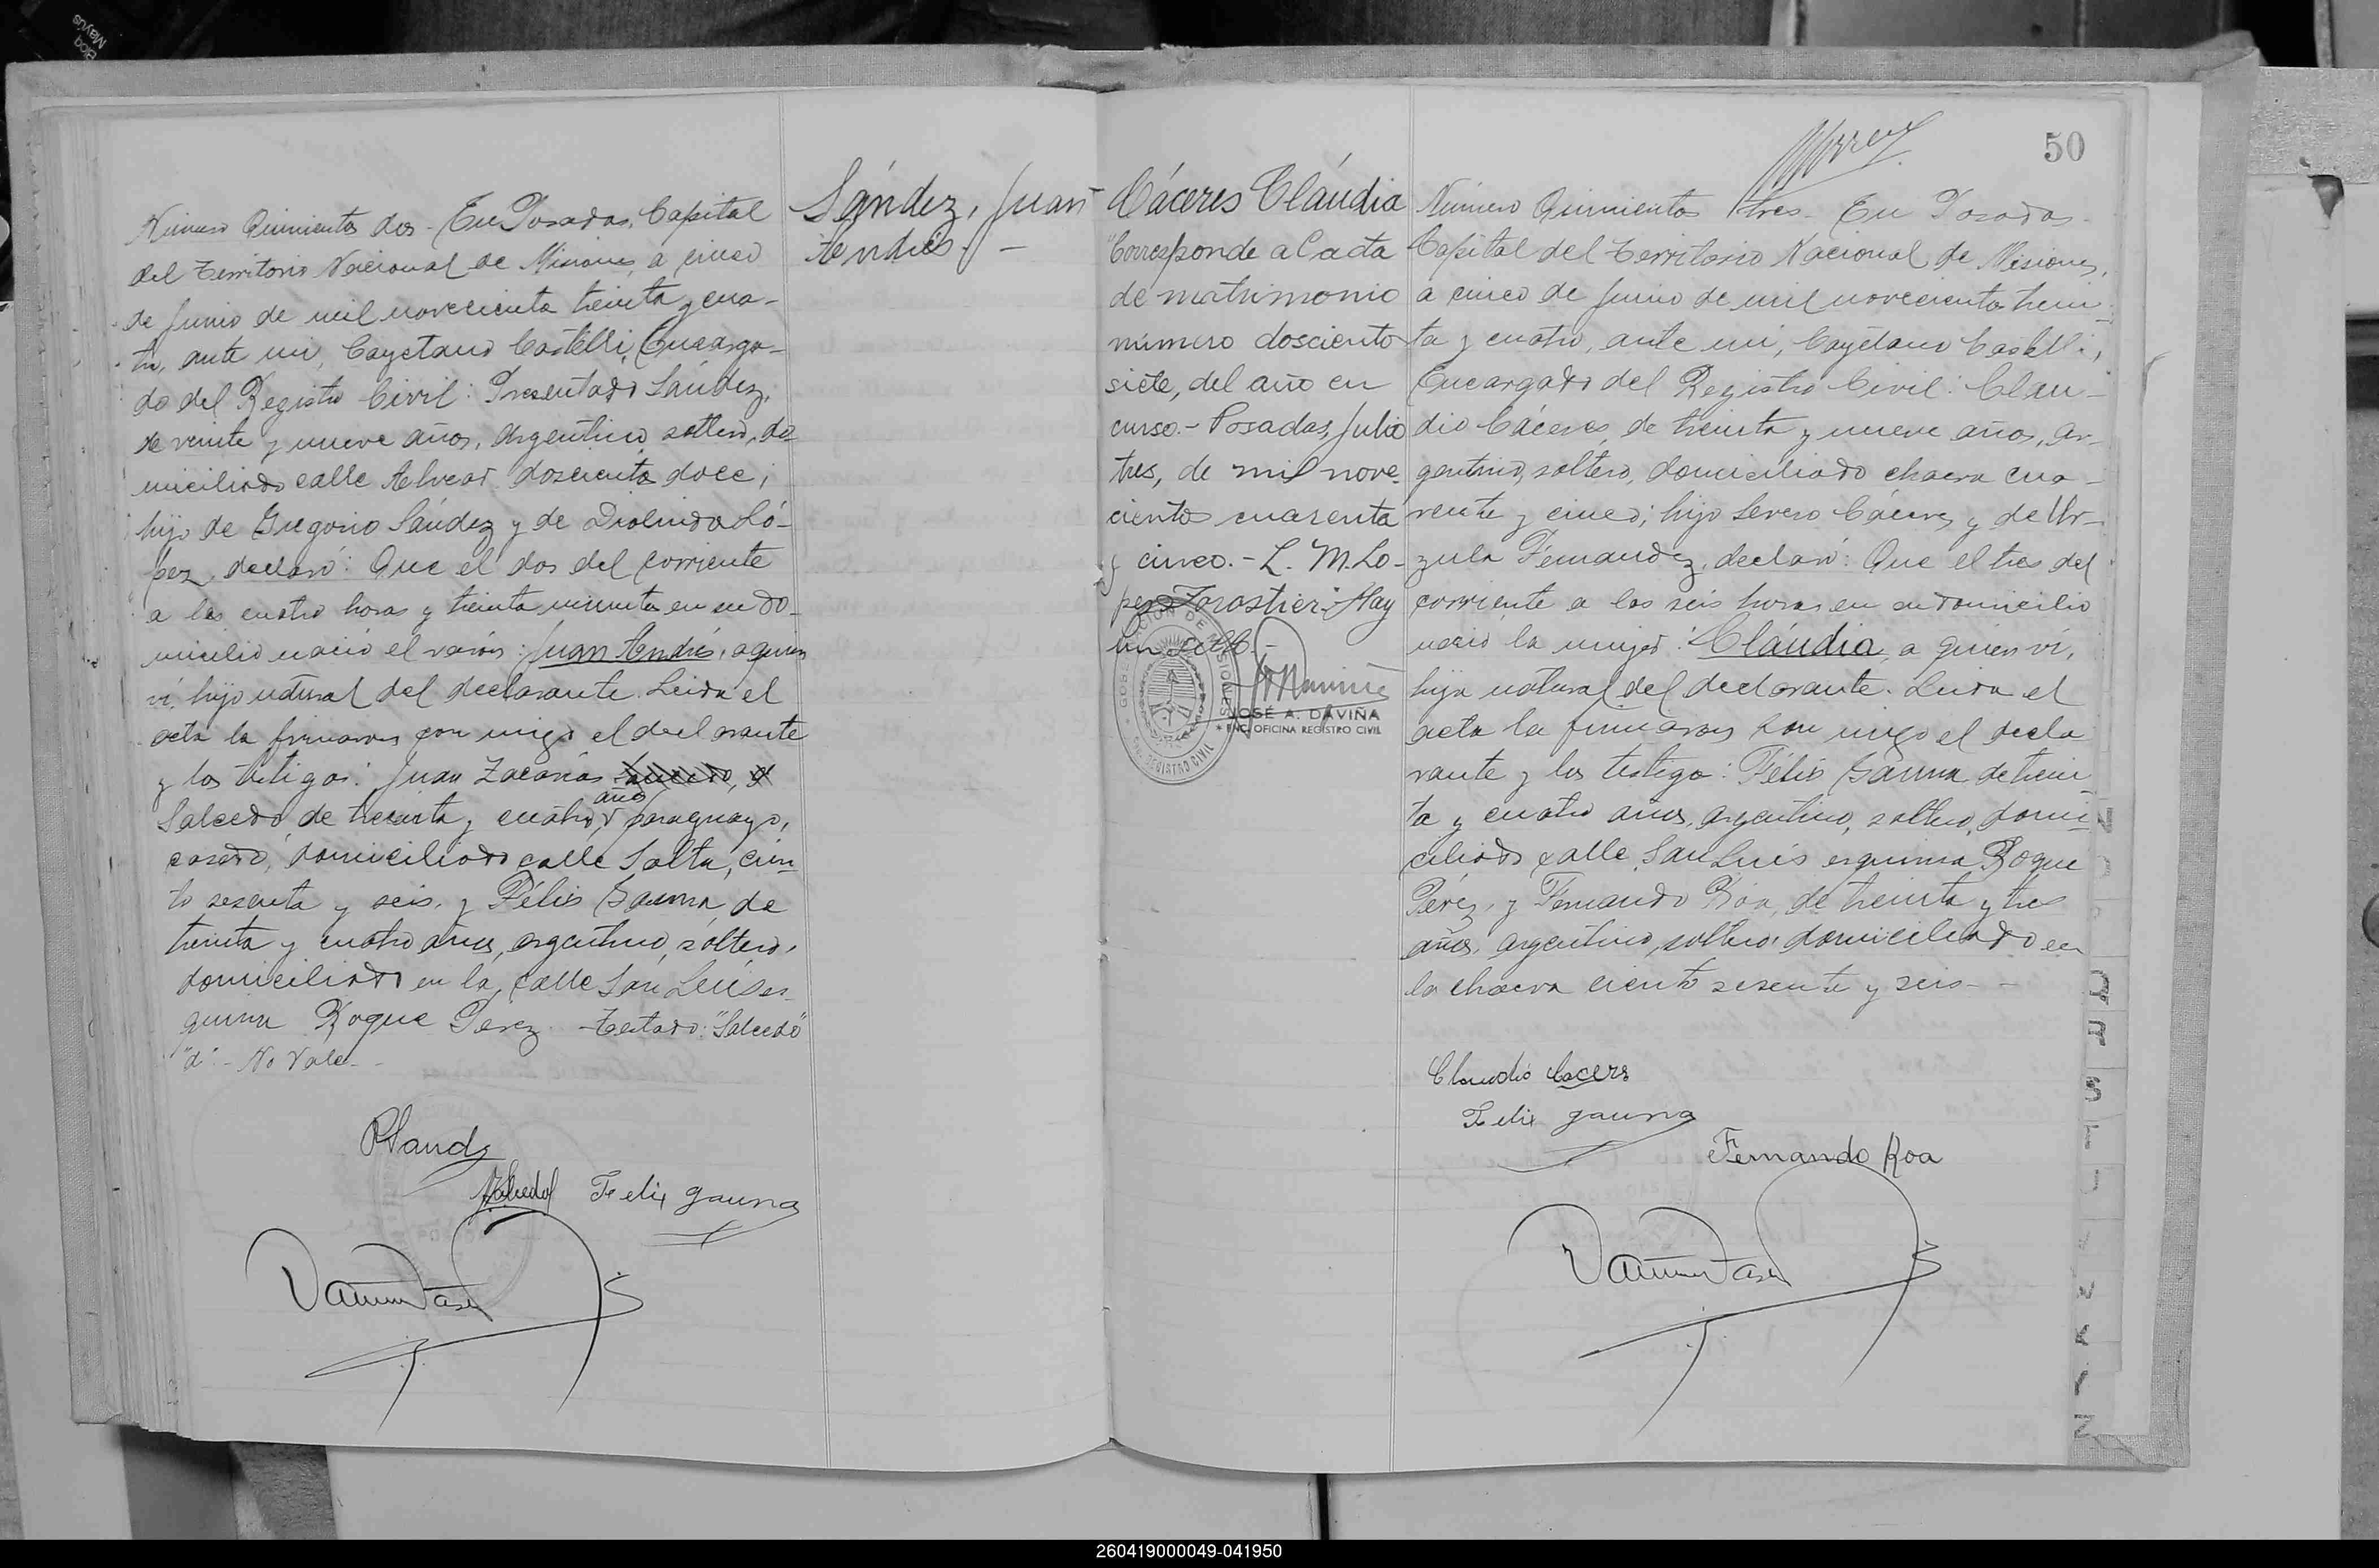 Número Quinientos dos - En Posadas, Capital
del Territorio Nacional de Misiones, a cinco
de Junio de mil novecientos treinta y cua-
tro, ante mi, Cayetano Castelli, Encarga-
do del Registro Civil: Presentado Sández,
de veinte y nueve años, argentino, soltero, do-
miciliado calle Alvear doscientos doce;
hijo de Gregorio Sández y de Diolinda Ló-
pez, declaró: Que el dos del corriente
a las cuatro horas y treinta minutos en su do-
micilio nació el varón: Juan Andrés, a quien
ví, hijo natural del declarante. Leida el
acta la firmaron con migo el declarante
y los testigos: Juan Zacarías
años
Salcedo, de treinta y cuatro, paraguayo,
casado, domiciliado calle Salta, cien-
to sesenta y seis, y Félis Gauna, de
treinta y cuatro años, argentino, soltero,
domiciliado en la calle San Luis es-
quina Roque Perez. - Testado: "Salcedo"
"d" - No Vale. -
Felix gauna
Sández, Juan
Andrés. -
50
Cáceres Cláudia
"Corresponde al acta
de matrimonio
número dosciento
siete, del año en
curso. - Posadas, Julio
tres, de mil nove-
cientos cuarenta
y cinco. - L. M. Lo-
pez Forastier. - Hay
un sello. -
JOSÉ A. DAVIÑA
ENC. OFICINA REGISTRO CIVIL
Número Quinientos tres - En Posadas
Capital del Territorio Nacional de Misiones,
a cinco de Junio de mil novecientos trein-
ta y cuatro, ante mi, Cayetano Castelli,
Encargado del Registro Civil: Clau-
dio Cáceres, de treinta y nueve años, ar-
gentino, soltero, domiciliado chacra cua-
renta y cinco; hijo Severo Cáceres y de Ur-
zula Fernandez, declaró: Que el tres del
corriente a las seis horas en su domicilio
nació la mujer: Cláudia, a quien ví,
hija natural del declarante. Leida el
acta la firmaron con migo el decla
rante y los testigos: Félis Gauna, de trein-
ta y cuatro años, argentino, soltero, domi-
ciliado calle San Luis esquina Roque
Pérez, y Fernando Róa, de treinta y tres
años, argentino, soltero, domiciliado en
la chacra ciento sesenta y seis - -
Claudio Cacers
Felix gauna
Fernando Roa
260419000049-041950